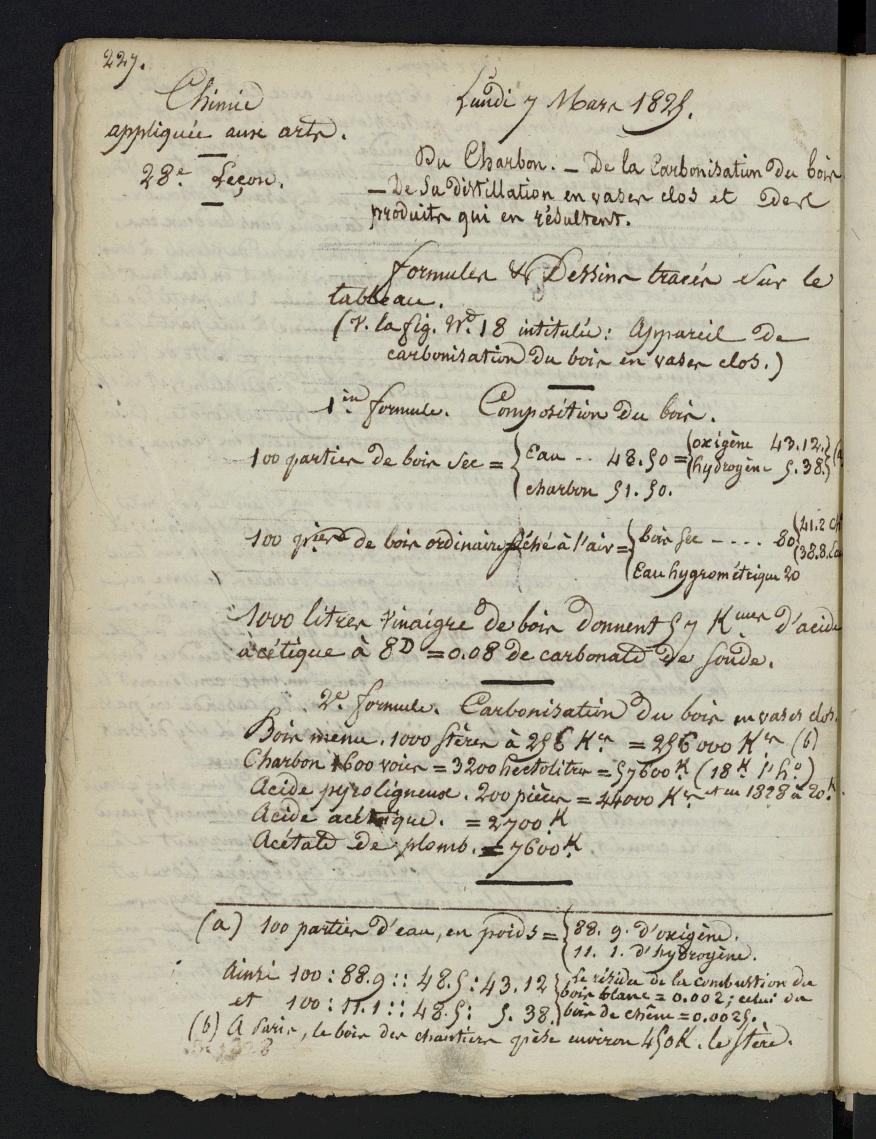 227.
Chimie
appliquée aux arts.
28e. Leçon.
Lundi 7 Mars 1825.
Du Charbon. – De la Carbonisation du bois
– De sa distillation en vases clos et des
produits qui en résultent.
formules & Dessins tracés sur le
tableau.
(V. la fig. No. 18 intitulée: Appareil de
carbonisation du bois en vases clos.)
1ère formule. Composition du bois.
100 parties de bois sec = { Eau .. 48.50 = { oxigène 43.12. } (a
{ hydrogène 5.38. }
charbon 51.50.
100 pies de bois ordinaire séché à l'air = { bois sec – . . . 80 { 41.2 ch
{ 38.8.
Eau hygrométrique 20
1000 litres vinaigre de bois donnent 57 Kmes d'acide
acétique à 8D = 0.08 de carbonate de soude.
2e formule. Carbonisation du bois en vases clos.
Bois menu. 1000 stères à 256 Kes = 256000 Kes (b)
Charbon 1600 voies = 3200 hectolitres = 57600 K (18 K l'ho)
Acide pyroligneuse. 200 pièces = 44000 Kes et en 1828 à 20.K
Acide acétique. = 2700 K
Acétate de plomb. = 7600 K.
(a) 100 parties d'eau, en poids = { 88. 9. d'oxigène.
{ 11. 1. d'hydrogène.
Ainsi 100 : 88.9 :: 48.5 : 43.12
et 100 : 11.1 :: 48.5 : 5.38.
Le résidu de la combustion du
bois blanc = 0.002 ; celui du
bois de chêne = 0.0025.
(b) A Paris, le bois des chantiers pèse environ 450K. le stère.